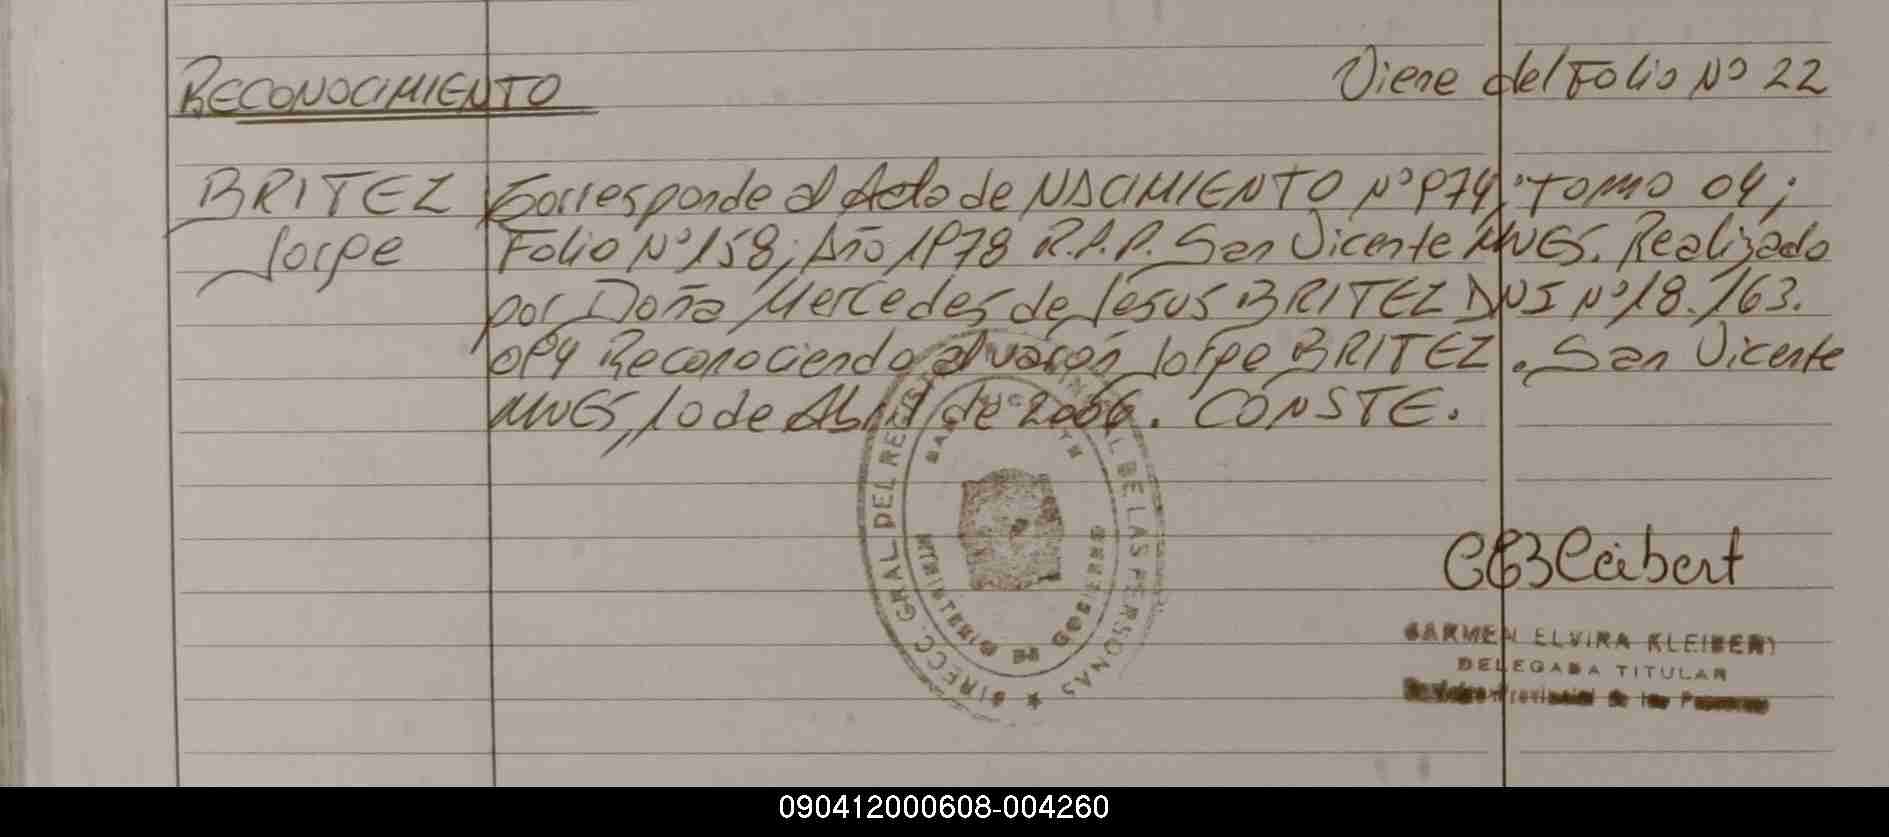 RECONOCIMIENTO
Viene del Folio Nº 22
BRITEZ
Jorge
Corresponde al Acta de NACIMIENTO Nº 974; TOMO 04;
Folio Nº 158; Año 1978 R.P.P. San Vicente MNES. Realizado
por Doña Mercedes de Jesus BRITEZ DNI Nº 18.163.
094 Reconociendo al varón Jorge BRITEZ. San Vicente
MNES, 10 de Abril de 2006. CONSTE.
DIRECC. GRAL DEL DE LAS PERSONAS
MINISTERIO DE GOBIERNO
CARMEN ELVIRA KLEIBERT
DELEGADA TITULAR
Provincial de las Personas
090412000608-004260